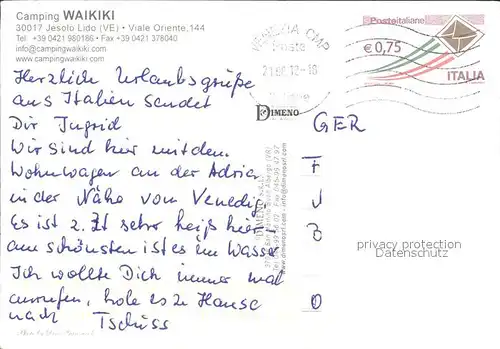 Camping WAIKIKI
30017 Jesolo Lido (VE) • Viale Oriente,144
Tel. +39 0421 980186 • Fax +39 0421 378040
info@campingwaikiki.com
www.campingwaikiki.com
VENEZIA CMP
Poste
21.06.12-16
Posteitaliane
€ 0,75
ITALIA
DIMENO
Herzlich Urlaubsgrüße
aus Italien sendet
Dir Ingrid
Wir sind hier mit dem
Wohnwagen an der Adria
in der Nähe vom Venedig
Es ist z. Zt sehr heiß hier
am schönsten ist es im Wasser
Ich wollte Dich immer mal
anrufen, hole es zu Hause
nach Tschüss
GER
privacy protection
Datenschutz